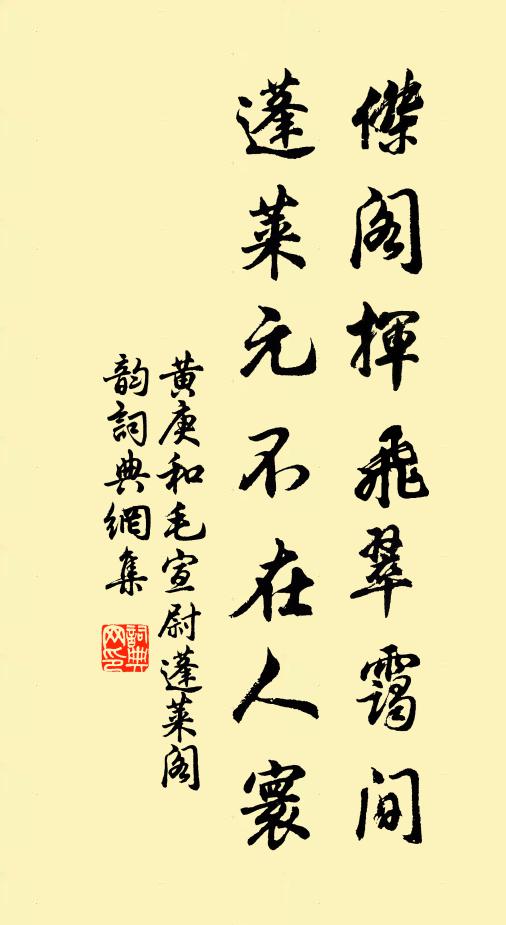 傑阁揮飛翠靄间
蓬萊元不在人寰
黄庚和毛宣尉蓬萊阁
韵詞典網集
詞典
网印